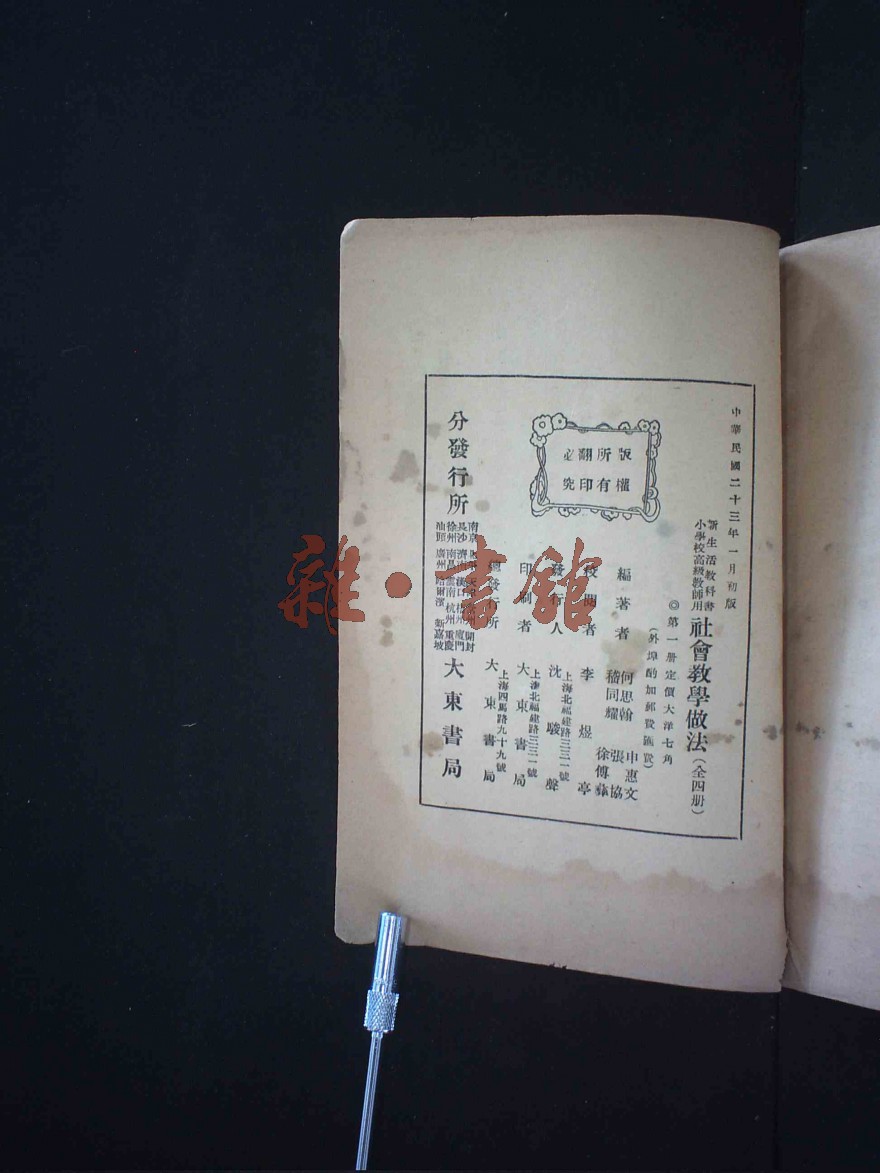 中華民國二十三年一月初版
新生活教科書
小學校高級教師用
社會教學做法(全四册)
◎第一册定價大洋七角
(外埠酌加郵費匯費)
版權
所有
翻印
必究
編著者
何思翰 申惠文
嵇同耀 張協
徐傅彝
校閱者 李煜亭
發行人
上海北福建路三三一號
沈駿聲
印刷者
上海北福建路三三一號
大東書局
總發行所
上海四馬路九十九號
大東書局
分發行所
南京
長沙 濟南 漢口
徐州 南昌 雲南 杭州 重慶
汕頭 廣州 哈爾濱 新嘉坡
開封
廈門
大東書局
雜·書館